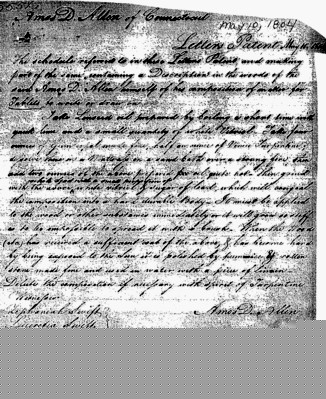 Amos D. Allen of Connecticut
May 10, 1804
Letters Patent May 10, 1804
The schedule referred to in these Letters Patent, and making
part of the same, containing a Description in the words of the
said Amos D. Allen himself of his composition of matter for
Tablets to write or draw on.
Take Linseed oil prepared by boiling a short time with
quick lime and a small quantity of white Vitriol. Take four
ounces of gum copal made fine, half an ounce of Venice Turpentine;
dissolve over a strong fire, then
add two ounces of the above oil
with the above, white vitriol & sugar of lead, which will compel
the composition into a hard & durable body. It must be applied
to the wood or other substance immediately or it will grow so stiff
as to be impossible to spread it with a brush. When the Wood
(&c.) has received a sufficient coat of the above, & has become hard
by being exposed to the Sun it is polished by pumice & rotten
stone made fine and used in water with a piece of
Dilute the composition if necessary with spirit of Turpentine
Witnesses
Zephaniah Swift
Lucretia Swift
Amos D. Allen